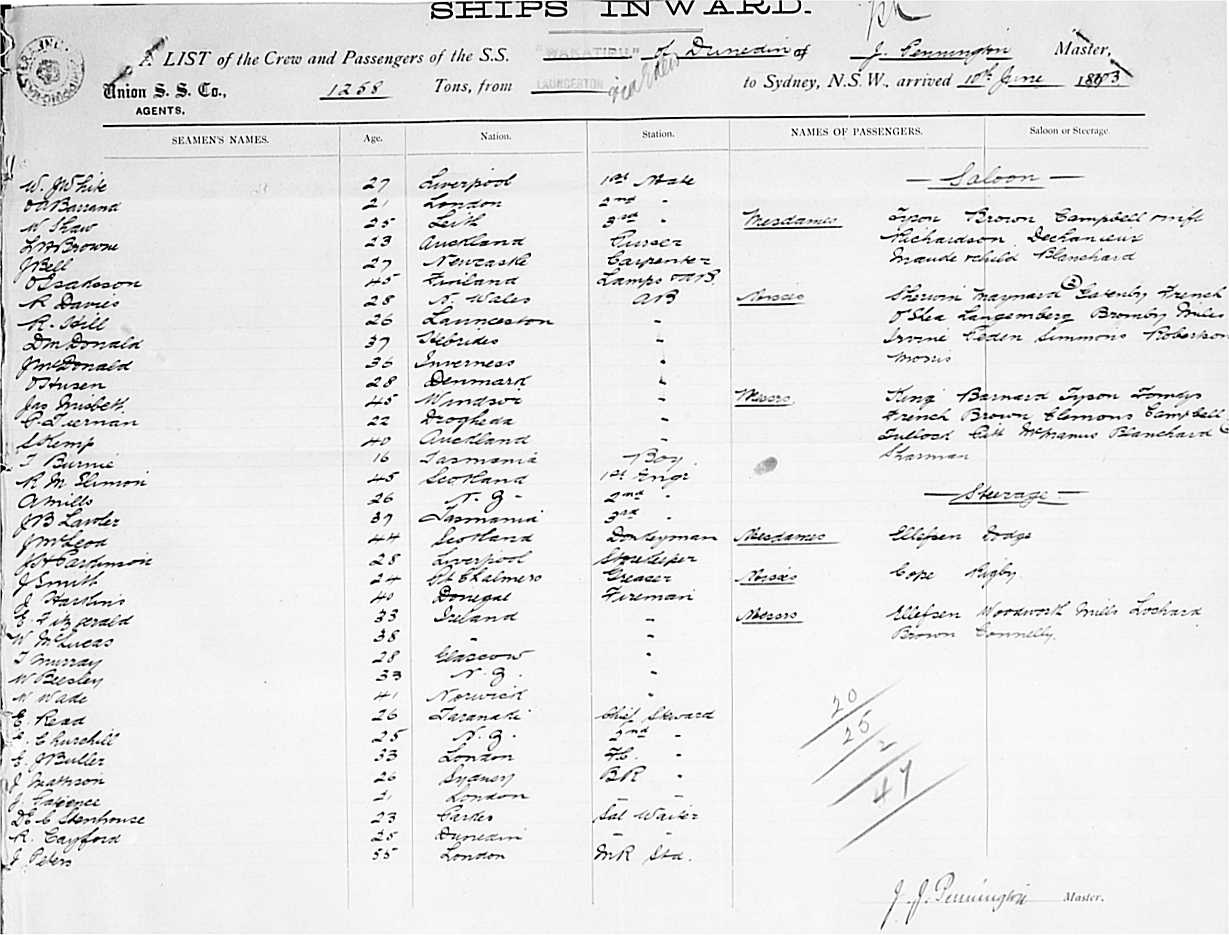 SHIPS INWARD.
A LIST of the Crew and Passengers of the S.S. "WAKATIPU" of Dunedin of J. Pennington Master,
Union S. S. Co., 1258 Tons, from LAUNCESTON to Sydney, N.S.W., arrived 10th June 1893
AGENTS.
SEAMEN'S NAMES. Age. Nation. Station. NAMES OF PASSENGERS. Saloon or Steerage.
W. J White 27 Liverpool 1st Mate — Saloon —
Barrand 21 London 2nd "
W Shaw 25 Leith 3rd " Mesdames Tyson Brown Campbell
Browne 23 Auckland Purser Richardson Dechanieux
J Bell 27 Newcastle Carpenter Maude & child Blanchard
O Isaksson 45 Finland Lamps & AB.
R Davies 28 N. Wales AB Misses Sherwin Maynard Gatenby French
R. Hill 26 Launceston " O'Shea Langemberg Bromby Miles
D McDonald 37 Hebrides " Irvine Peden Simmons Robertson
J McDonald 36 Inverness " Morris
28 Denmark "
Jas Nisbett 45 Windsor " Messrs. King Barnard Tyson
C Tiernan 22 Drogheda " French Brown Clemons Campbell
S Kemp 40 Auckland " Tullock McManus Blanchard
T Burnie 16 Tasmania Boy Sharman
R. M. Slimon 45 Scotland 1st Engr
A Mills 26 N. Z - 2nd " — Steerage —
J B Lawler 37 Tasmania 3rd "
J McLeod 44 Scotland Donkeyman Mesdames Ellefsen Dodge
J H Parkinson 28 Liverpool Storekeeper
J Smith 24 Pt Chalmers Greaser Misses Cope Rigby
J Harkins 40 Donegal Fireman
E Fitzgerald 33 Ireland " Messrs Ellefsen Woodworth Mills Lochard
W McLucas 38 " " Brown Connelly.
T Murray 28 Glasgow "
W Beesley 33 N. Z. "
W Wade 41 Norwich "
E. Read 26 Taranaki Chief Steward
Churchill 25 N. Z. 2nd "
E. J Buller 33 London F.C. "
J Mathson 26 Sydney BR "
J. 21 London " "
Stenhouse 23 Sal Waiter
R. Cayford 25 Dunedin " "
J Peters 55 London MR Std.
20
25
2
47
J. J. Pennington Master.